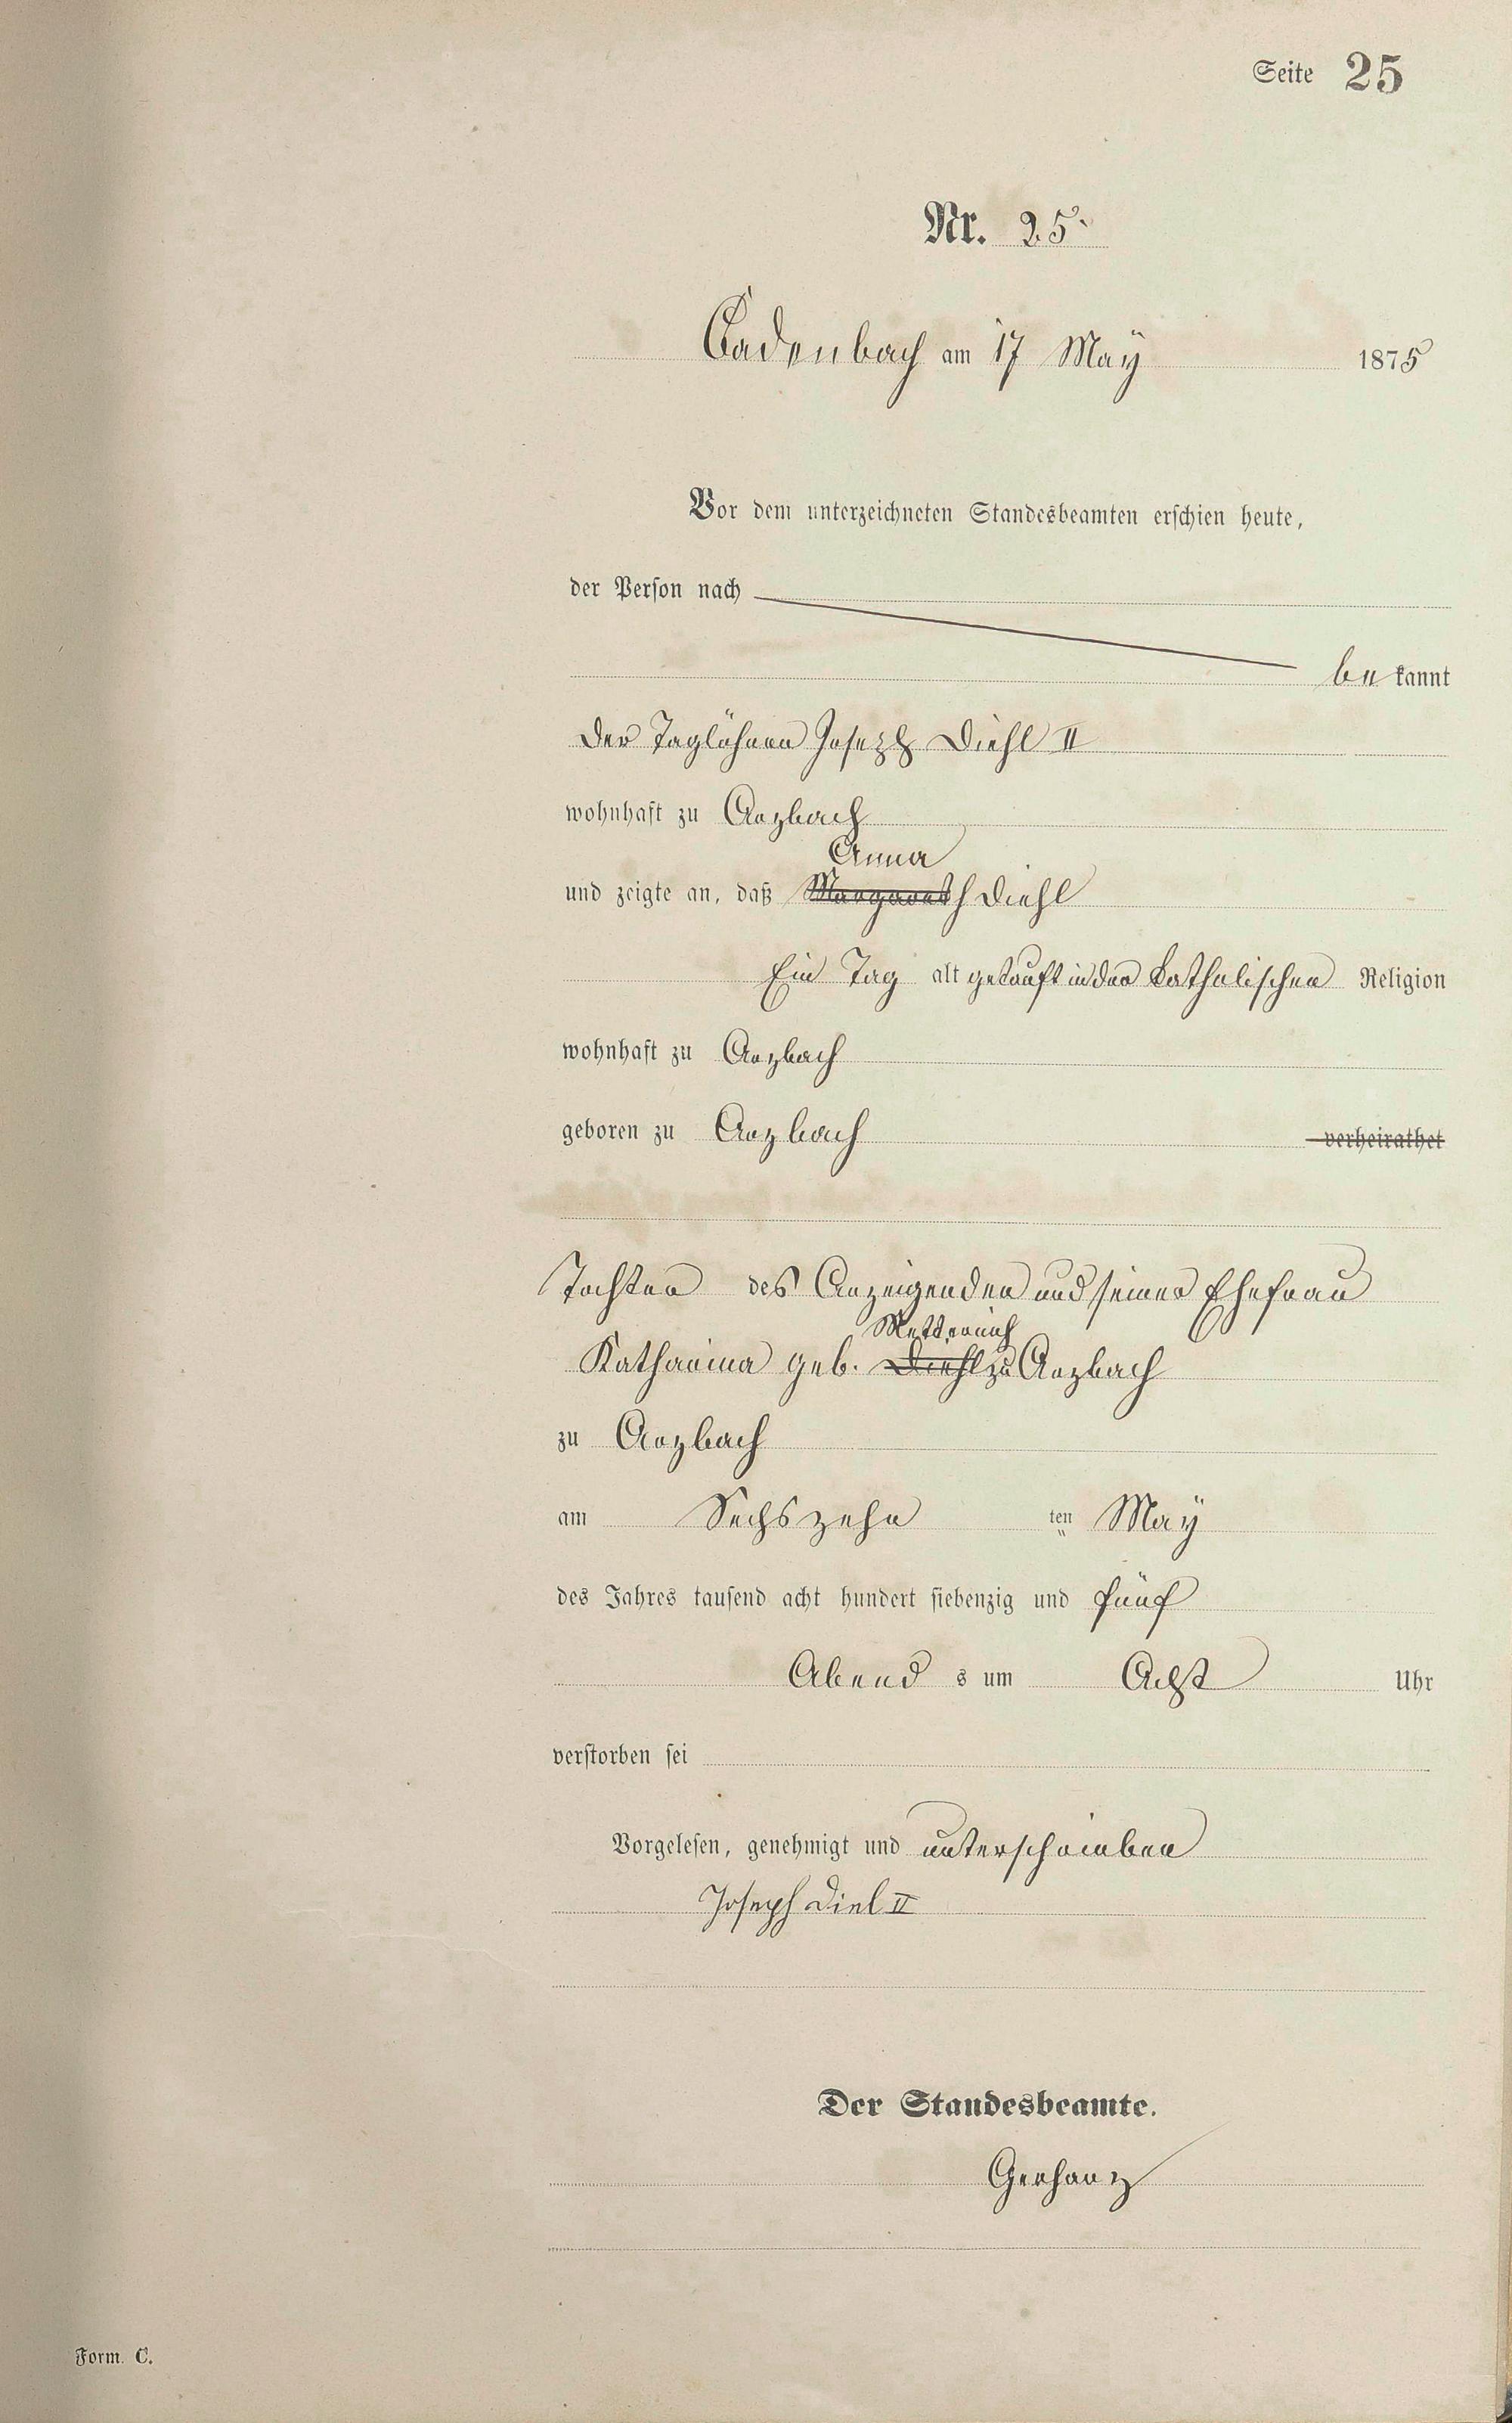 Seite 25
Nr. 25
Cadenbach am 17 Maÿ 1875
Vor dem unterzeichneten Standesbeamten erschien heute,
der Person nach
bekannt
der Taglöhner Joseph Diehl II
wohnhaft zu Arzbach
Anna
und zeigte an, daß Margareth Diehl
Ein Tag alt getauft in der Katholischen Religion
wohnhaft zu Arzbach
geboren zu Arzbach verheirathet
Tochter des Anzeigenden und seiner Ehefrau
Metternich
Katharina geb. Diehl zu Arzbach
zu Arzbach
am Sechszehn ten Maÿ
des Jahres tausend acht hundert siebenzig und fünf
Abend s um Acht Uhr
verstorben sei
Vorgelesen, genehmigt und unterschrieben
Joseph Diel II
Der Standesbeamte.
Gerharz
Form. C.